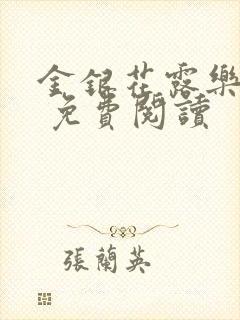 金銀花露樂
免費閱讀
張蘭英